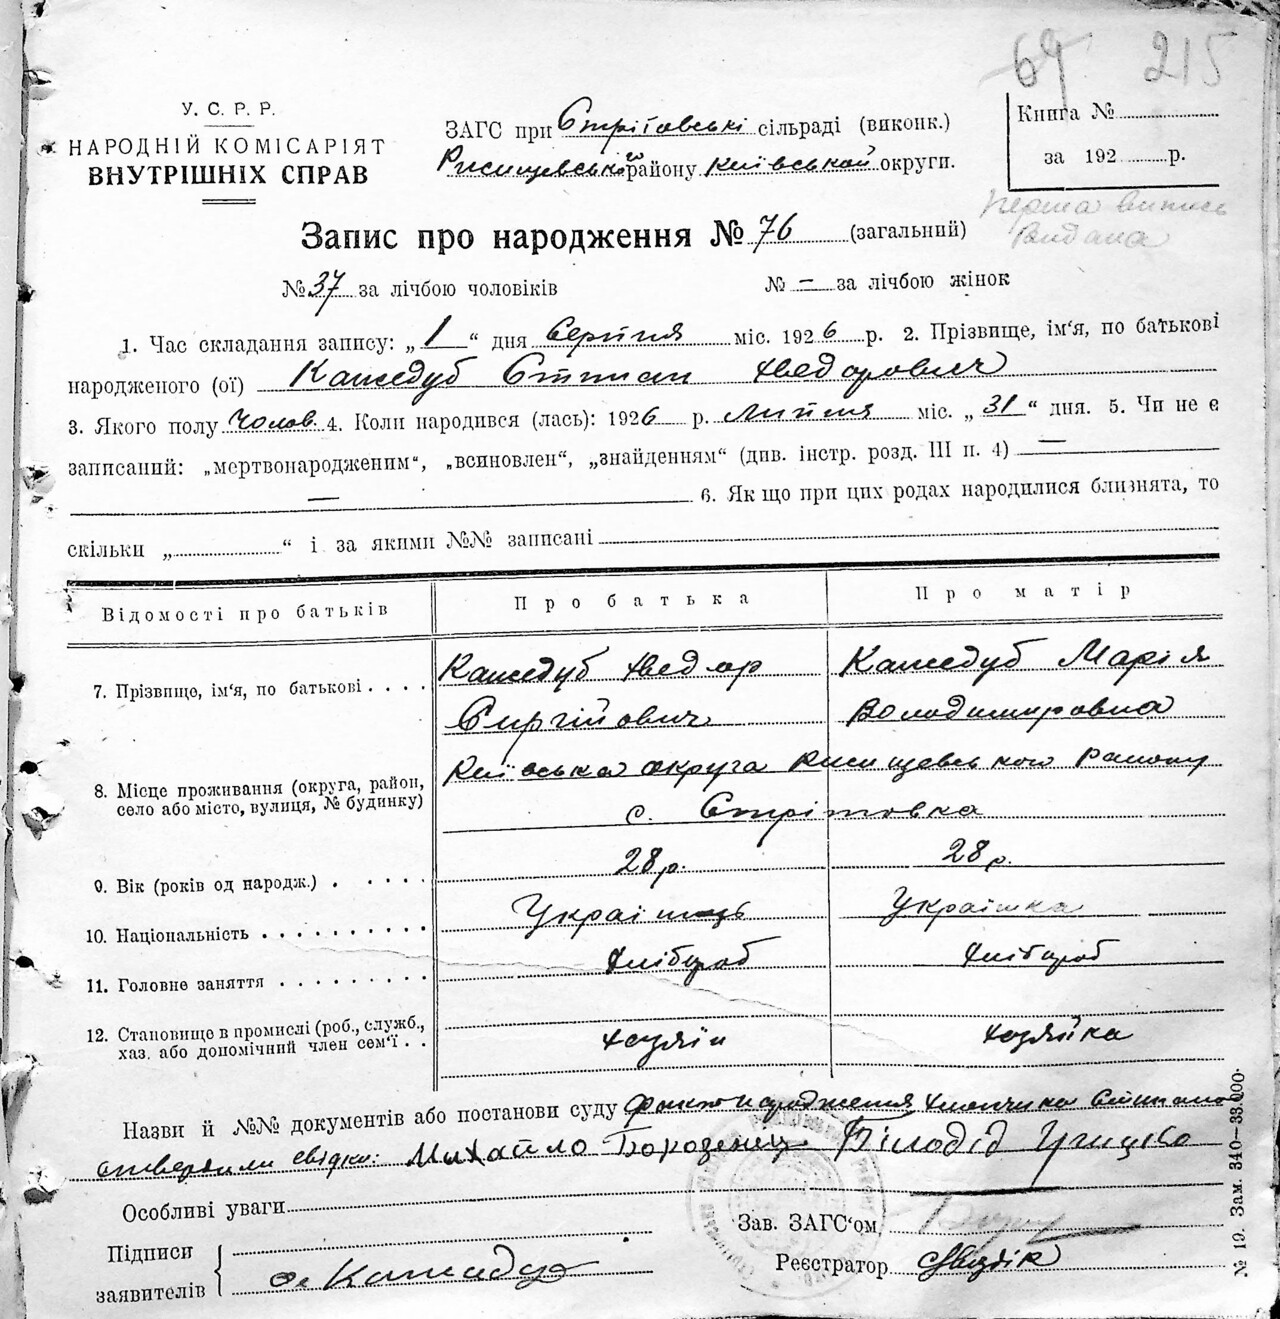 69 215
У. С. Р. Р.
НАРОДНІЙ КОМІСАРІЯТ
ВНУТРІШНІХ СПРАВ
ЗАГС при Стрітовські сільраді (виконк.)
Рисищевського району Київської округи.
Книга №
за 192 р.
перша випись
видана
Запис про народження № 76 (загальний)
№ 37 за лічбою чоловіків № — за лічбою жінок
1. Час складання запису: „1“ дня Серпня міс. 1926 р. 2. Прізвище, ім'я, по батькові
народженого (ої) Кажедуб Стипан Хведорович
3. Якого полу Чолов. 4. Коли народився (лась): 1926 р. Липня міс. „31“ дня. 5. Чи не є
записаний: „мертвонародженим“, „всиновлен“, „знайденням“ (див. інстр. розд. III п. 4) —
— 6. Як що при цих родах народилися близнята, то
скільки „ “ і за якими №№ записані
Відомості про батьків Про батька Про матір
7. Прізвище, ім'я, по батькові . . . . Кажедуб Хведор Кажедуб Марія
Сиргійович Володимировна
8. Місце проживання (округа, район, село або місто, вулиця, № будинку) Київська округа Рисищевського Району
с. Стрітовка
9. Вік (років од народж.) . . . . . 28 р. 28 р.
10. Національність . . . . . . . . . . Українець Українка
11. Головне заняття . . . . . . . . . Хлібороб Хлібороб
12. Становище в промислі (роб., служб., хаз. або допомічний член сем'ї . . Хозяїн Хозяйка
Назви й №№ документів або постанови суду факт народження хлопчика Стипана
ствердили свідки: Михайло Борозенец Білодід Грицько
Особливі уваги
Зав. ЗАГС'ом
Підписи
заявителів
Кажедуб
Реєстратор
№ 19. Зам. 340—33.000.